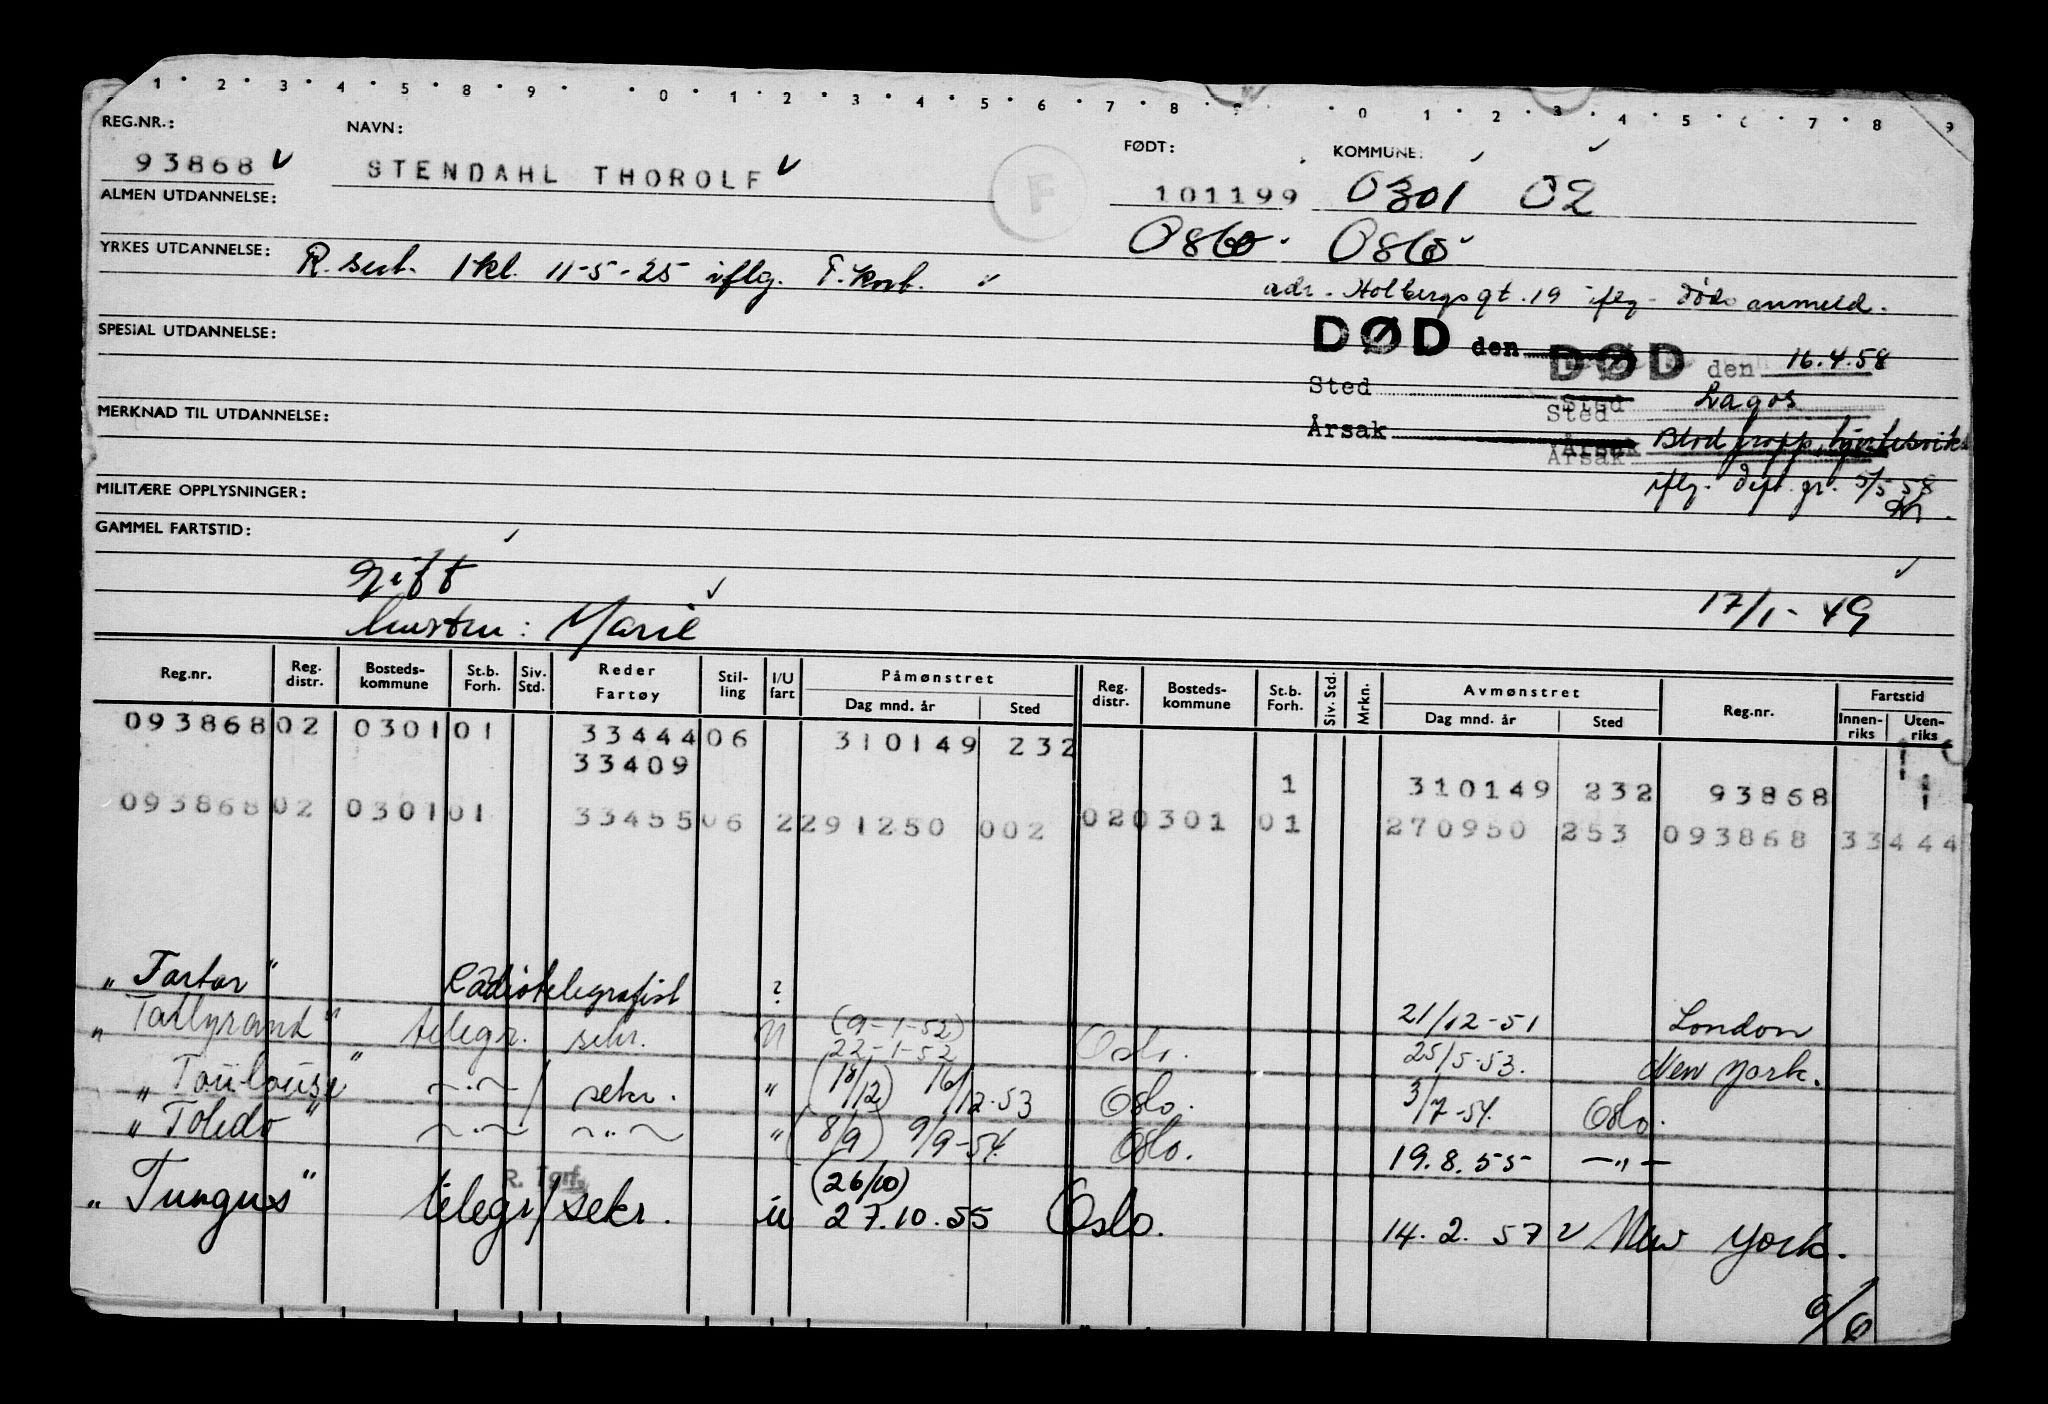 1 2 3 4 5 8 9 0 1 2 3 4 5 6 7 8 9 0 1 2 3 4 5 6 7 8 9
REG.NR.: NAVN: FØDT: KOMMUNE:
93868 STENDAHL THOROLF F 101199 0301 02
ALMEN UTDANNELSE:
Oslo. Oslo
YRKES UTDANNELSE: R. sert. 1 kl. 11-5-25 iflg. T. kort.
adr. Holbergsgt. 19 iflg. døds anmeld.
SPESIAL UTDANNELSE:
DØD den DØD den 16.4.58
Sted Sted Sted Lagos
MERKNAD TIL UTDANNELSE:
Årsak Årsak Årsak Blodpropp, hjertesvikt
MILITÆRE OPPLYSNINGER: iflg. dept. gr. 5/5 58
GAMMEL FARTSTID:
gift 17/1-49
hustru: Marie
Reg.nr. Reg. distr. Bosteds-kommune St.b. Forh. Siv. Std. Reder Fartøy Stil-ling I/U fart Påmønstret Dag mnd. år Sted Reg. distr. Bosteds-kommune St.b. Forh. Siv. Std. Mrkn. Avmønstret Dag mnd. år Sted Reg.nr. Fartstid Innen-riks Uten-riks
093868 02 0301 01 33444 06 310149 232
33409 1 310149 232 93868
093868 02 0301 01 33455 06 2 291250 002 02 0301 01 270950 253 093868 33444
"Tartar" Radiotelegrafist ? 21/12-51 London
"Tallyrand" telegr. sekr. U (9-1-52) 22-1-52 Oslo. 25/5-53. New York.
"Toulouse" ~"~ / sekr. " (18/12) 16/12-53 Oslo. 3/7-54. Oslo.
"Toledo" ~"~ ~"~ " (8/9) 9/9-54. Oslo. 19.8.55 -"-
R. Tgrf.
"Tungus" telegr/sekr. u (26/10) 27.10.55 Oslo. 14.2.57 New York.
6/6